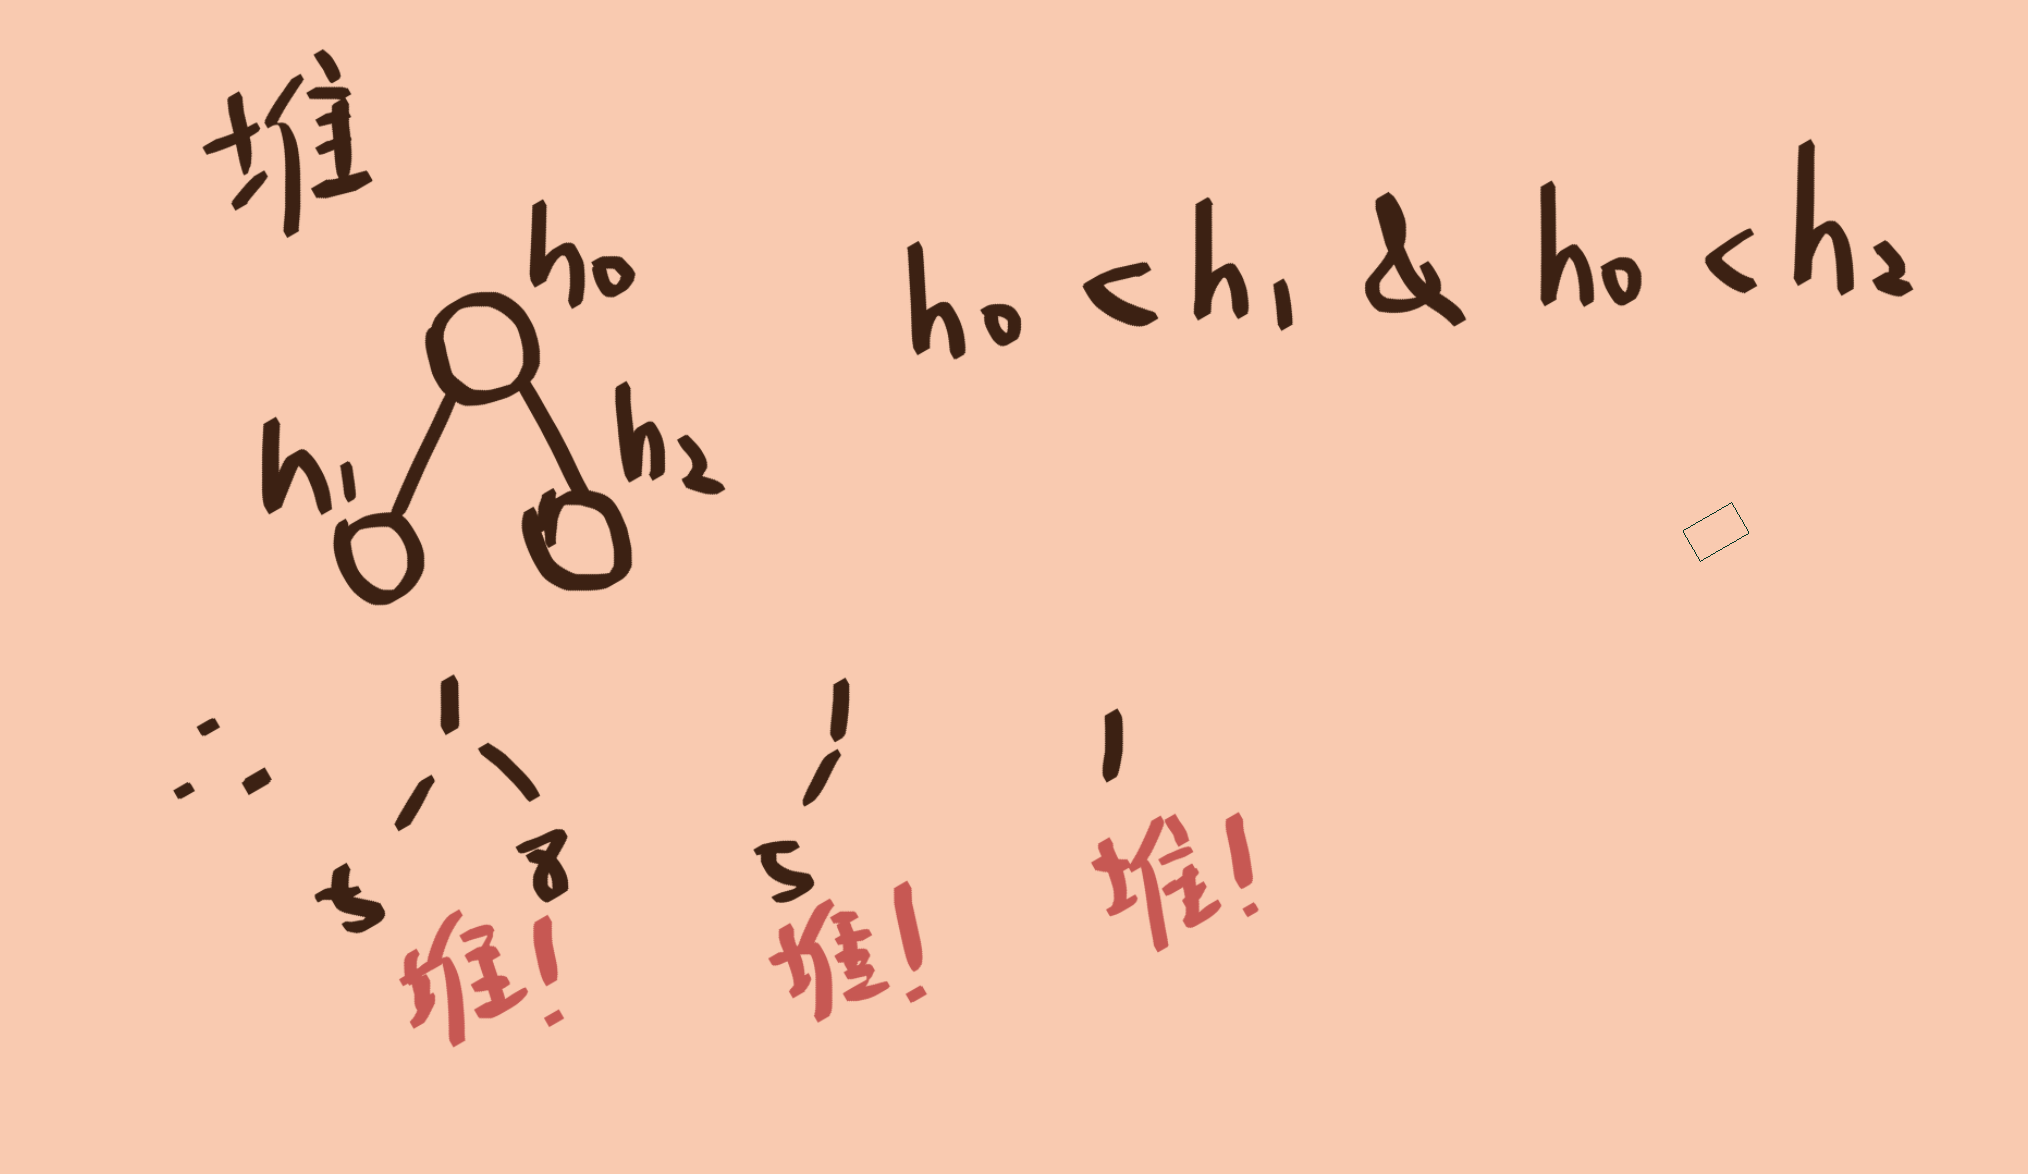 堆
h0
h0 < h1 & h0 < h2
h1
h2
∴
1
5 8
堆!
1
5
堆!
1
堆!